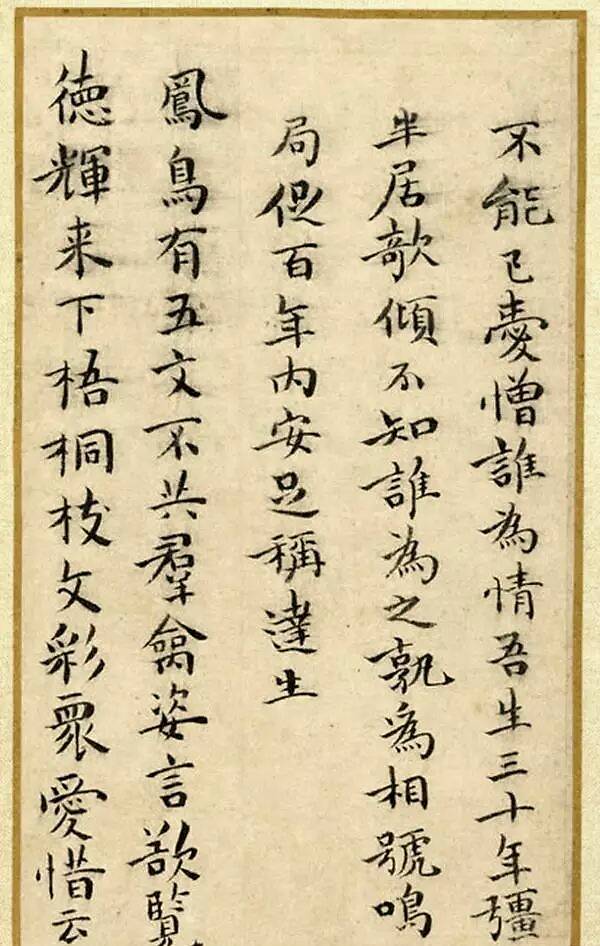 不能已憂憎誰為情吾生三十年彊
半居欹傾不知誰為之孰為相號鳴
局促百年內安足稱達生
鳳鳥有五文不共羣禽姿言欲覽
德輝来下梧桐枝文彩眾愛惜云